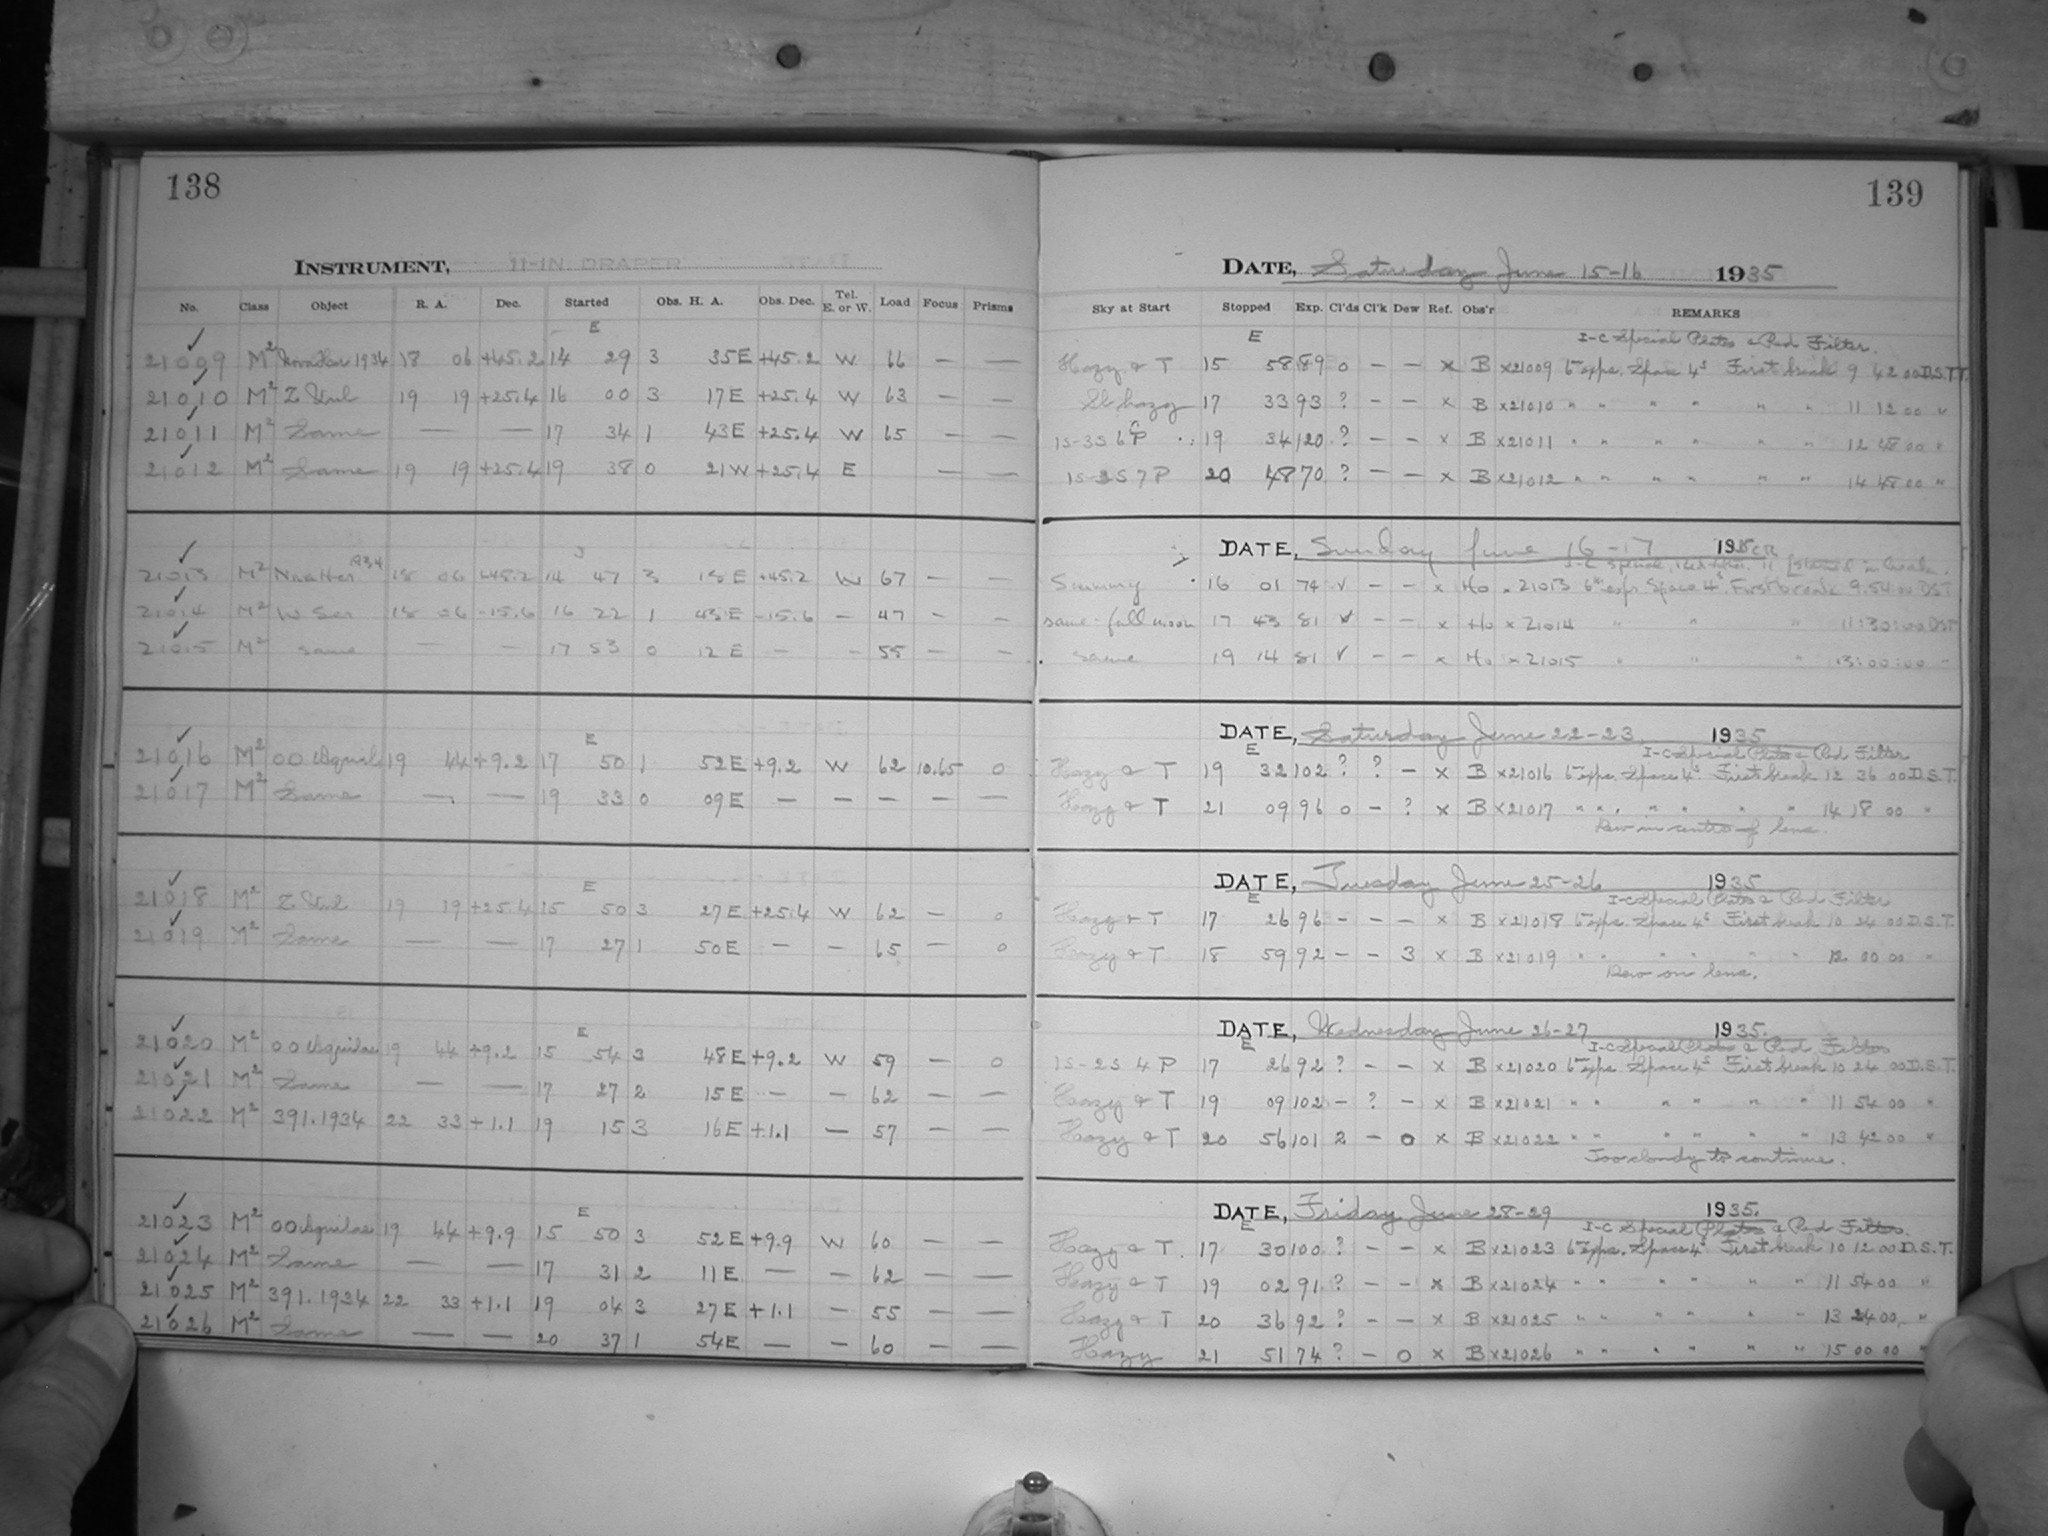 138
INSTRUMENT, 11-IN DRAPER
No. Class Object R. A. Dec. Started Obs. H. A. Obs. Dec. Tel. E. or W. Load Focus Prisms
E
21009 M² 1934 18 06 +45.2 14 29 3 35E +45.2 W 66 — —
21010 M² Z 19 19 +25.4 16 00 3 17E +25.4 W 63 — —
21011 M² Same — — 17 34 1 43E +25.4 W 65 — —
21012 M² Same 19 19 +25.4 19 38 0 21W +25.4 E — —
21013 M² 18 06 +45.2 14 47 3 18E +45.2 W 67 — —
21014 M² W Ser 18 06 -15.6 16 22 1 43E -15.6 — 47 — —
21015 M² same — — 17 53 0 12E — — 55 — —
E
21016 M² 00 19 44 +9.2 17 50 1 52E +9.2 W 62 10.65 0
21017 M² Same — — 19 33 0 09E — — — — —
E
21018 M² Z 19 19 +25.4 15 50 3 27E +25.4 W 62 — 0
21019 M² Same — — 17 27 1 50E — — 65 — 0
E
21020 M² 00 Aquilae 19 44 +9.2 15 54 3 48E +9.2 W 59 — 0
21021 M² Same — — 17 27 2 15E — — 62 — —
21022 M² 391.1934 22 33 +1.1 19 15 3 16E +1.1 — 57 — —
E
21023 M² 00 Aquilae 19 44 +9.9 15 50 3 52E +9.9 W 60 — —
21024 M² Same — — 17 31 2 11E — — 62 — —
21025 M² 391.1934 22 33 +1.1 19 04 3 27E +1.1 — 55 — —
21026 M² Same — — 20 37 1 54E — — 60 — —
139
DATE, Saturday June 15-16 1935
Sky at Start Stopped Exp. Cl'ds Cl'k Dew Ref. Obs'r REMARKS
E I-C Special Plates & Red Filter.
Hazy & T 15 58 89 0 — — x B x21009 6 exps. Space 4ˢ First break 9 42 00 D.S.T.
Sl hazy 17 33 93 ? — — x B x21010 " " " " " " 11 12 00 "
1S-3S 6 P 19 34 120 ? — — x B x21011 " " " " " " 12 48 00 "
1S-2S 7 P 20 48 70 ? — — x B x21012 " " " " " " 14 48 00 "
DATE, Sunday June 16-17 1935
16 01 74 v — — x Ho x 21013 6 exps Space 4ˢ. First break 9.54 00 DST
same - full moon 17 43 81 v — — x Ho x 21014 " " " 11:30:00 DST
same 19 14 81 v — — x Ho x 21015 " " " 13:00:00 "
DATE, Saturday June 22-23, 1935
E I-C Special Plates & Red Filter
Hazy & T 19 32 102 ? ? — x B x21016 6 exps. Space 4ˢ First break 12 36 00 D.S.T.
Hazy & T 21 09 96 0 — ? x B x21017 " " " " " " 14 18 00 "
Dew in centre of lens.
DATE, Tuesday June 25-26 1935
E I-C Special Plates & Red Filter
Hazy & T 17 26 96 — — — x B x21018 6 exps. Space 4ˢ First break 10 24 00 D.S.T.
Hazy & T 18 59 92 — — 3 x B x21019 " " " " " " 12 00 00 "
Dew on lens.
DATE, Wednesday June 26-27 1935.
E I-C Special Plates & Red Filter
1S-2S 4 P 17 26 92 ? — — x B x21020 6 exps. Space 4ˢ First break 10 24 00 D.S.T.
Hazy & T 19 09 102 — ? — x B x21021 " " " " " " 11 54 00 "
Hazy & T 20 56 101 2 — 0 x B x21022 " " " " " " 13 42 00 "
Too cloudy to continue.
DATE, Friday June 28-29 1935.
E I-C Special Plates & Red Filter.
Hazy & T. 17 30 100 ? — — x B x21023 6 exps. Space 4ˢ First break 10 12 00 D.S.T.
Hazy & T 19 02 91 ? — — x B x21024 " " " " " " 11 54 00 "
Hazy & T 20 36 92 ? — — x B x21025 " " " " " " 13 24 00 "
Hazy 21 51 74 ? — 0 x B x21026 " " " " " " 15 00 00 "